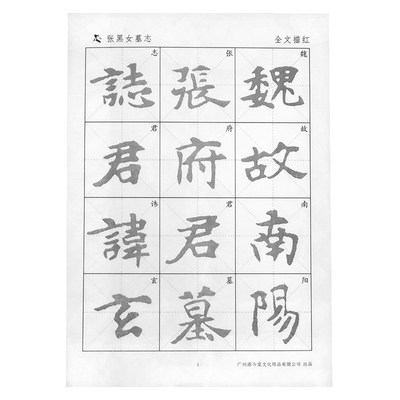 张黑女墓志
全文描红
魏故南阳
魏故南陽
张府君墓
張府君墓
志君讳玄
誌君諱玄
1
广州 文化用品有限公司 出品